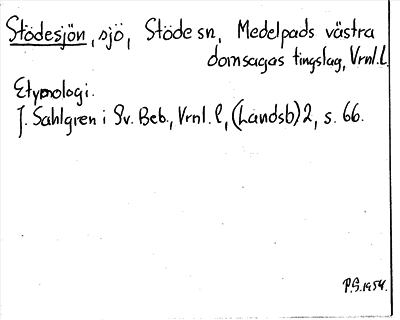 Stödesjön, sjö, Stöde sn, Medelpads västra
domsagas tingslag, Vrnl.l.
Etymologi.
J. Sahlgren i Sv. Beb., Vrnl. l, (Landsb) 2, s. 66.
P.G. 1954.